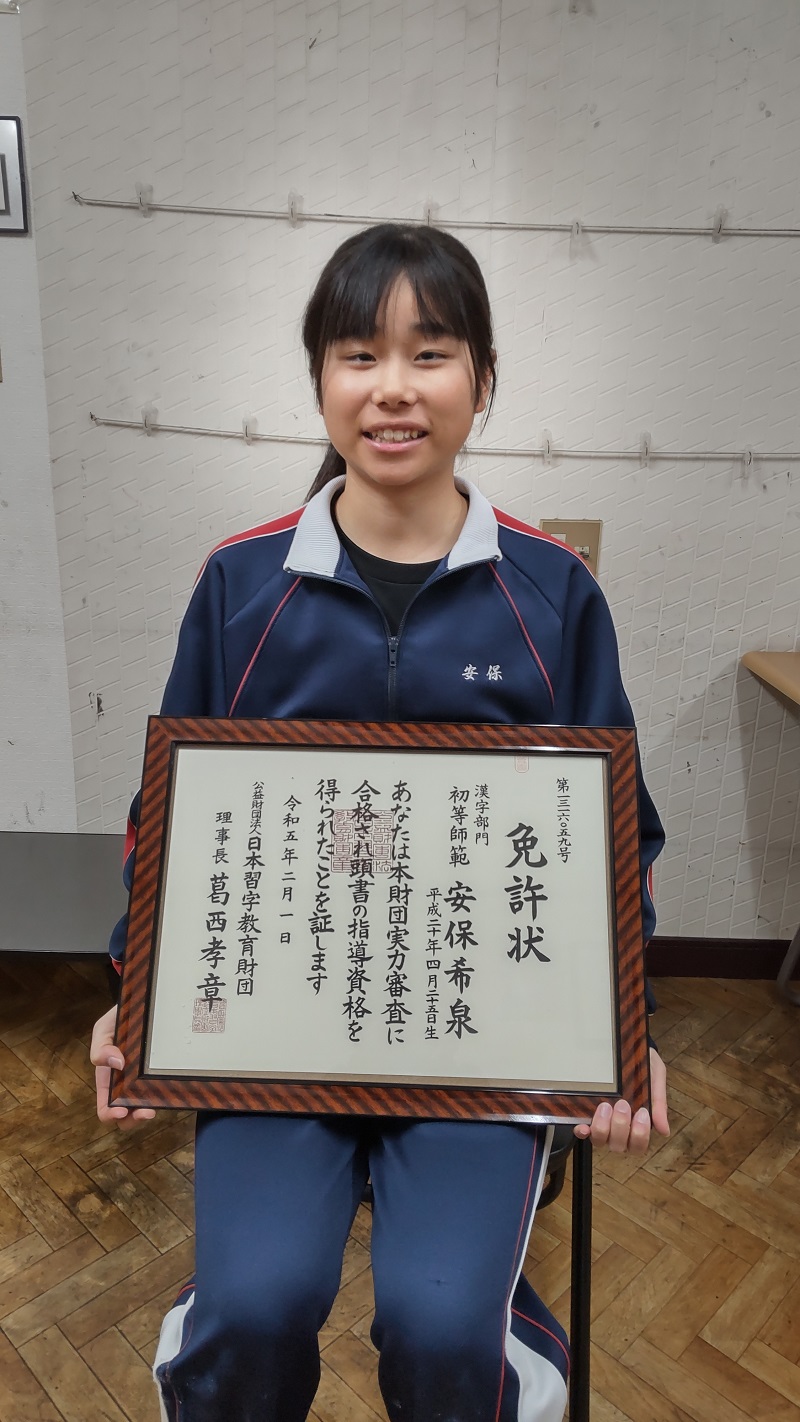 安保
第一三六〇五九号
免許状
漢字部門
初等師範
安保希泉
平成二十年四月二十五日生
あなたは本財団実力審査に
合格され頭書の指導資格を
得られたことを証します
令和五年二月一日
公益財団法人日本習字教育財団
理事長 葛西孝章